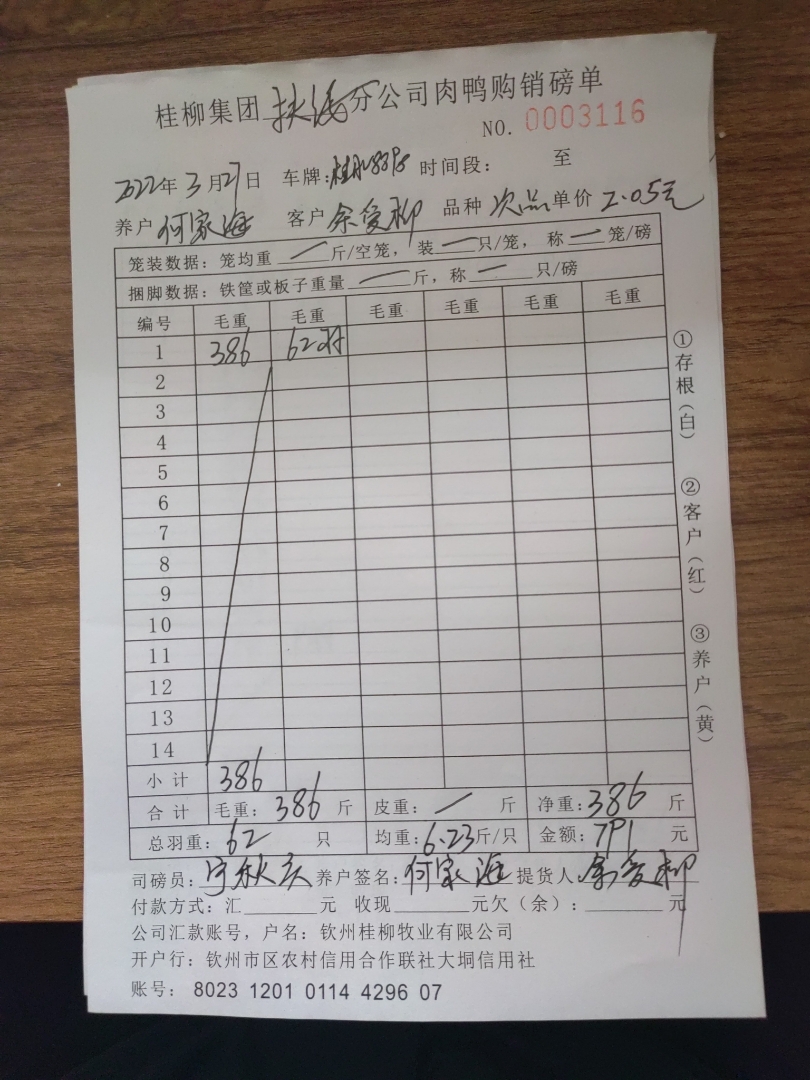 桂柳集团扶绥分公司肉鸭购销磅单
NO. 0003116
2022年3月27日 车牌: 时间段: 至
养户何家海 客户余爱柳 品种次品单价2.05元
笼装数据:笼均重一斤/空笼,装一只/笼,称一笼/磅
捆脚数据:铁筐或板子重量一斤,称一只/磅
编号 毛重 毛重 毛重 毛重 毛重 毛重
1 386 62羽
2
3
4
5
6
7
8
9
10
11
12
13
14
小计 386
合计 毛重:386斤 皮重:一斤 净重:386斤
总羽重:62只 均重:6.23斤/只 金额:791元
司磅员: 养户签名:何家海 提货人:余爱柳
付款方式:汇 元 收现 元欠(余): 元
公司汇款账号,户名:钦州桂柳牧业有限公司
开户行:钦州市区农村信用合作联社大垌信用社
账号:8023 1201 0114 4296 07
①存根(白)
②客户(红)
③养户(黄)